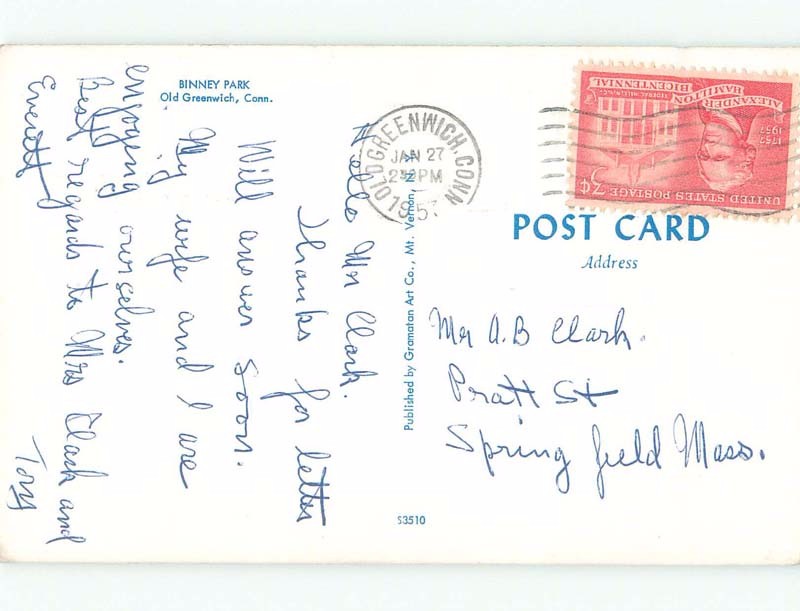 BINNEY PARK
Old Greenwich, Conn.
Hello Mr Clark.
Thanks for letter
Will answer soon.
My wife and I are
enjoying ourselves.
Best regards to Mrs Clark and
Everett
Tony
Published by Gramatan Art Co., Mt. Vernon, N.Y.
S3510
OLD GREENWICH, CONN
JAN 27
PM
1957
UNITED STATES POSTAGE 3¢
1757
1957
ALEXANDER
HAMILTON
BICENTENNIAL
FEDERAL HALL, N.Y.C.
POST CARD
Address
Mr A.B Clark.
Pratt St
Spring field Mass.